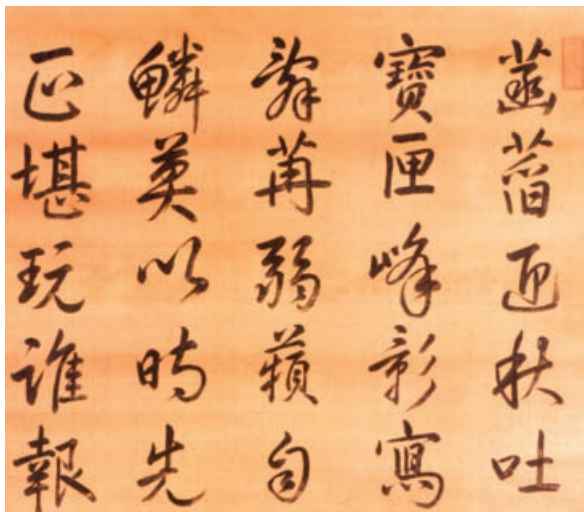 菡萏迎秋吐
寶匣峰影寫
辭苒弱蘋自
鱗莫以時先
正堪玩誰報